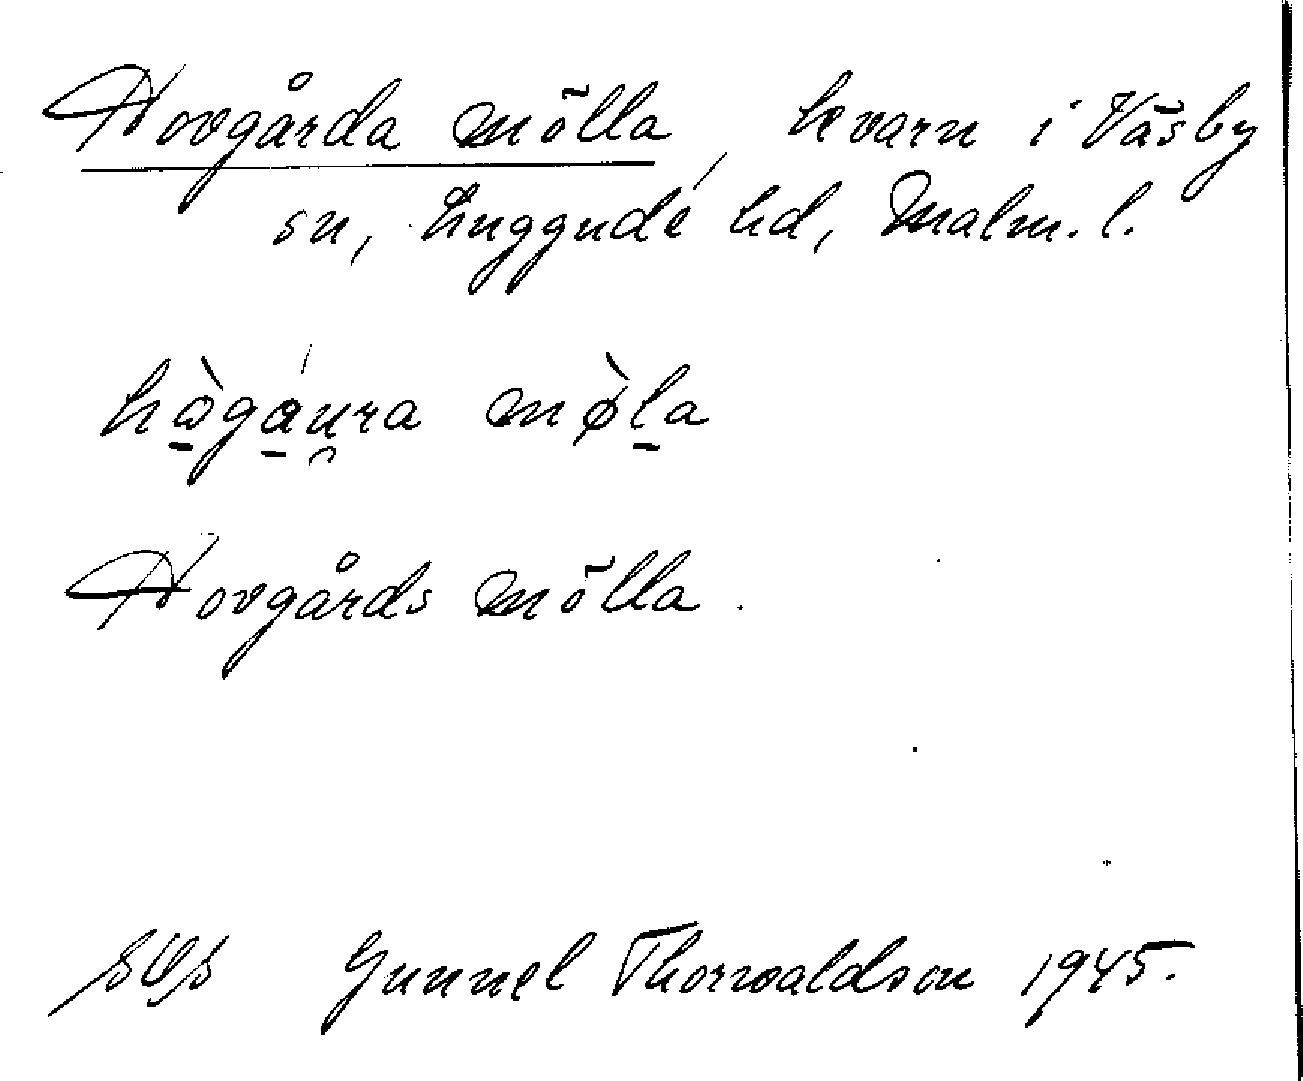 Hovgårda mölla, kvarn i Väsby
sn, Luggude hd, Malm. l.
Hovgårds mölla.
Gunnel Thorvaldson 1945.